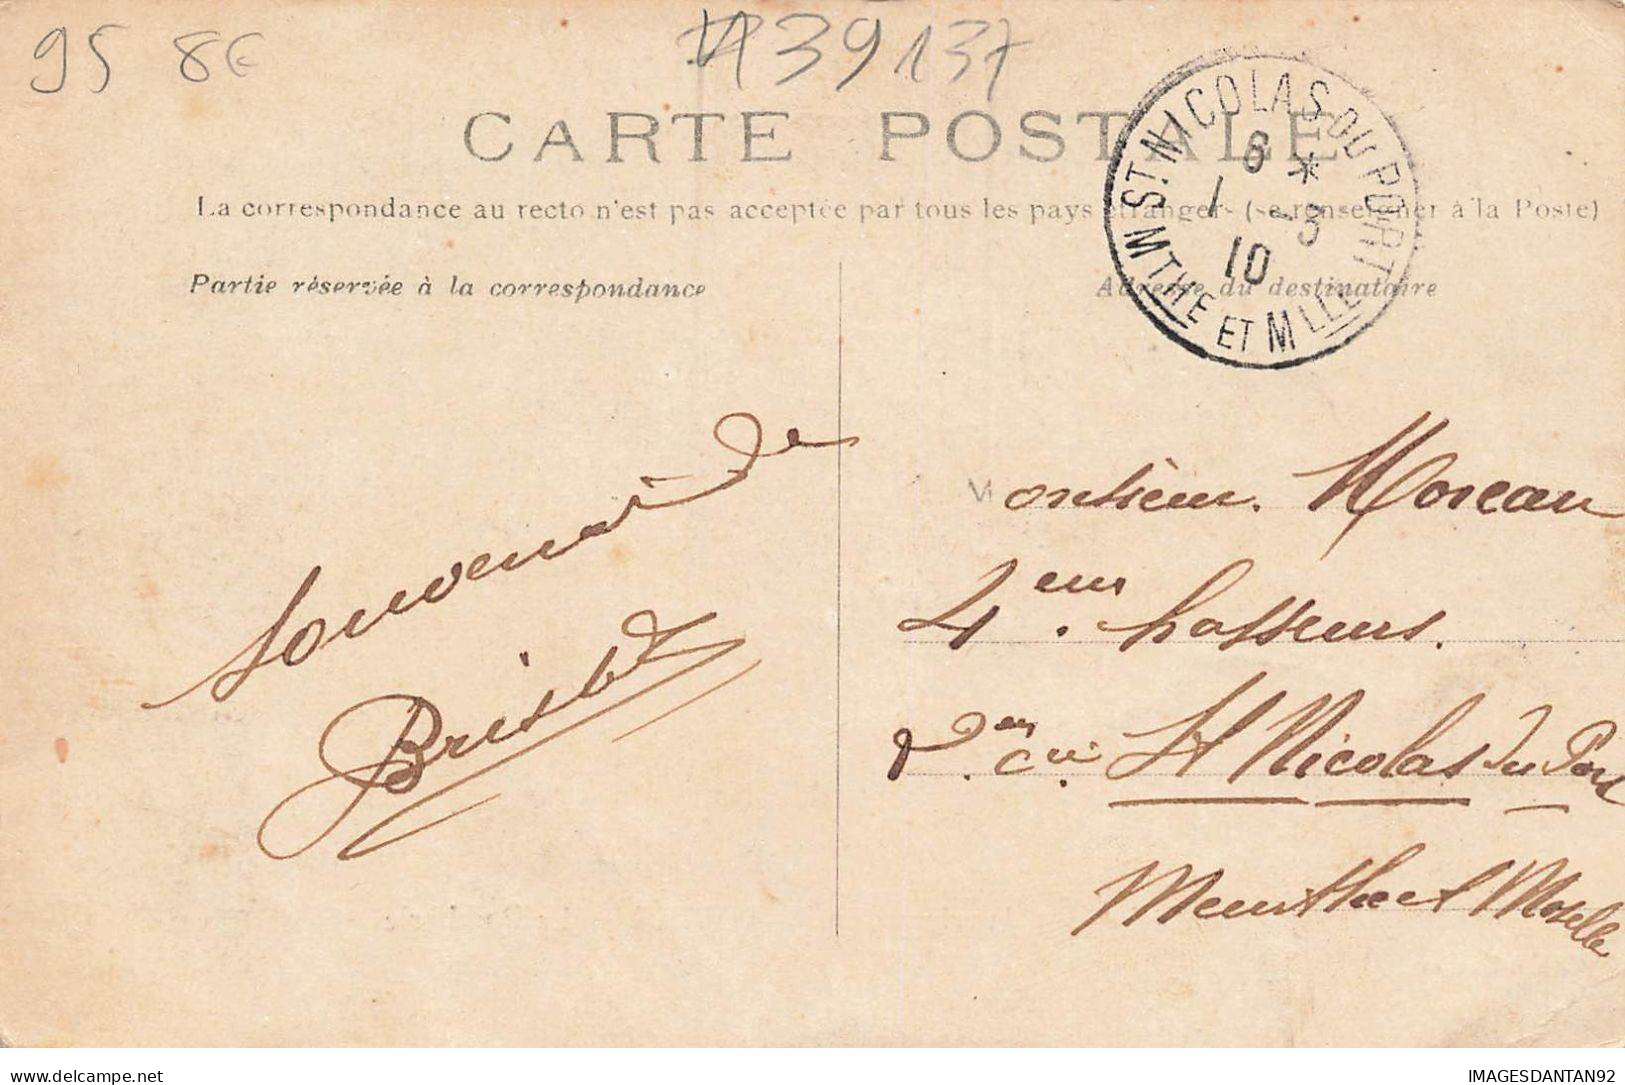 95 8€
39137
CARTE POSTALE
La correspondance au recto n'est pas acceptée par tous les pays étrangers (se renseigner à la Poste)
Partie réservée à la correspondance
Adresse du destinataire
ST. NICOLAS-DU-PORT
6 *
1 -3
10
MTHE ET MLLE
Souvenir de
Monsieur. Moreau
4eme. hasseurs.
St Nicolas du Port
Meurthe et Moselle
delcampe.net
IMAGESDANTAN92